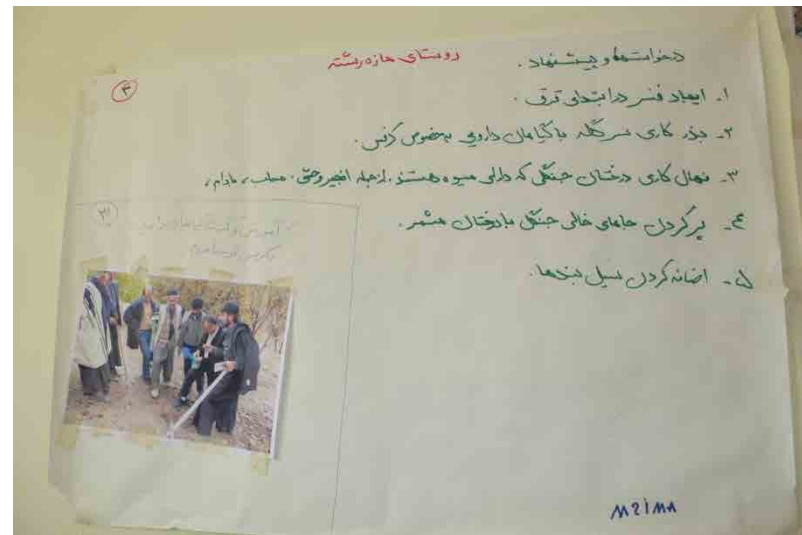 روستای مازه رشته
درخواستها و پیشنهاد .
۳
۱. ایجاد فنس در ابتدای قرق .
۲- بذر کاری سرگله با گیاهان دارویی به خصوص کرفس .
۳- نهال کاری درختان جنگلی که دارای میوه هستند . از جمله انجیر وحشی ، محلب ، بادام ،
۴- پر کردن جاهای خالی جنگل با درختان مثمر .
۵- اضافه کردن سیل بندها .
۳۱